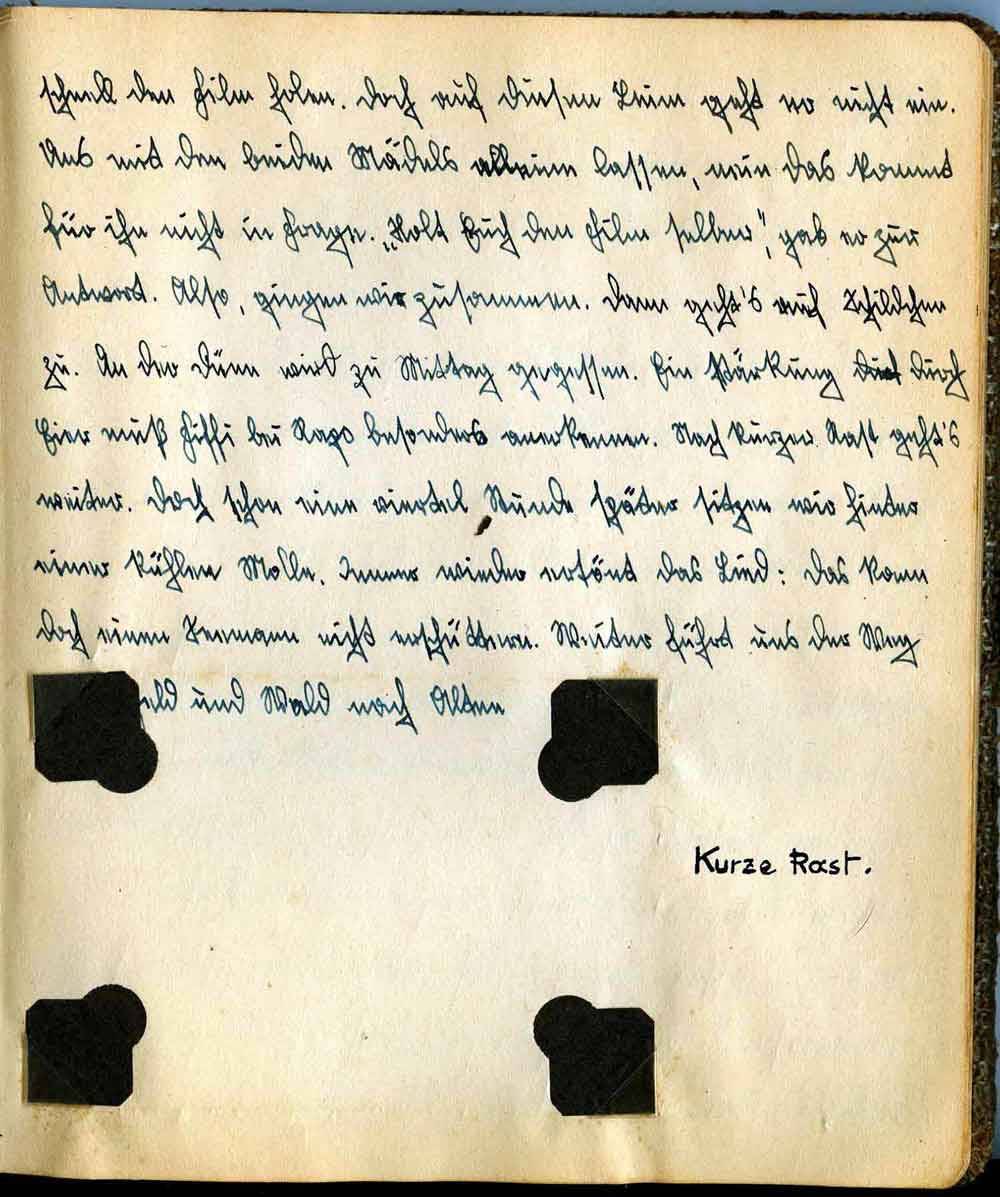 schnell den Film holen. Doch auf diesen Leim geht er nicht ein.
Uns mit den beiden Mädels alleine lassen, nein das kommt
für ihn nicht in Frage. „Holt Euch den Film selber", gab er zur
Antwort. Also, gingen wir zusammen. Dann geht's auf Schildchen
zu. An der Düne wird zu Mittag gegessen. Ein Stärkung durch
Eier muß Fiffi bei Rapo besonders anerkennen. Nach kurzer Rast geht's
weiter. Doch schon eine viertel Stunde später sitzen wir hinter
einer kühlen Molle. Immer wieder ertönt das Lied: Das kann
doch einen Seemann nicht erschüttern. Weiter führt uns der Weg
und Wald nach Alten
Kurze Rast.